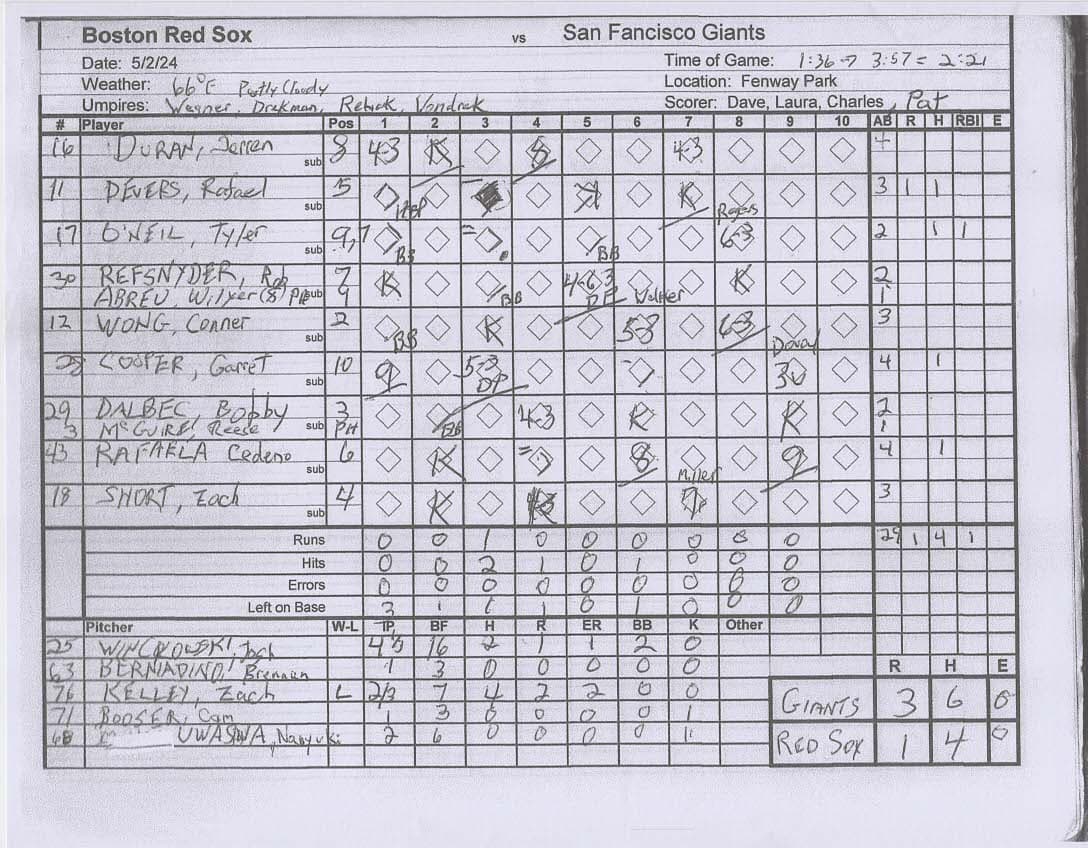 Boston Red Sox vs San Fancisco Giants
Date: 5/2/24 Time of Game: 1:36 → 3:57 = 2:21
Weather: 66°F Partly Cloudy Location: Fenway Park
Umpires: Wegner, Drekman, Rebick, Vondrak Scorer: Dave, Laura, Charles, Pat
# Player Pos 1 2 3 4 5 6 7 8 9 10 AB R H RBI E
16 DURAN, Jarren 8 4-3 K 8 4-3 4
sub
11 DEVERS, Rafael 5 HBP K 3 1 1
sub Rogers
17 O'NEIL, Tyler 9,7 BB BB 6-3 2 1 1
sub
30 REFSNYDER, Rob 7 K BB 4-6-3 DP K 2
ABREU, Wilyer (8) PH sub 9 Walker 1
12 WONG, Conner 2 BB K 5-3 6-3 3
sub Doval
28 COOPER, Garret 10 9 5-3 DP 3U 4 1
sub
29 DALBEC, Bobby 3 BB 4-3 K K 2
3 McGUIRE, Reese sub PH 1
43 RAFAELA Cedeno 6 K 8 9 4 1
sub Miller
18 SHORT, Zach 4 K 7 3
sub
Runs 0 0 1 0 0 0 0 0 0 29 1 4 1
Hits 0 0 2 1 0 1 0 0 0
Errors 0 0 0 0 0 0 0 0 0
Left on Base 3 1 1 1 0 1 0 0 0
Pitcher W-L IP BF H R ER BB K Other
25 WINCKOWSKI, Josh 4 1/3 16 2 1 1 2 0
63 BERNADINO, Brennan 1 3 0 0 0 0 0
76 KELLEY, Zach L 2/3 7 4 2 2 0 0
71 BOOSER, Cam 1 3 0 0 0 0 1
68 UWASAWA, Naoyuki 2 6 0 0 0 0
R H E
GIANTS 3 6 0
RED SOX 1 4 0